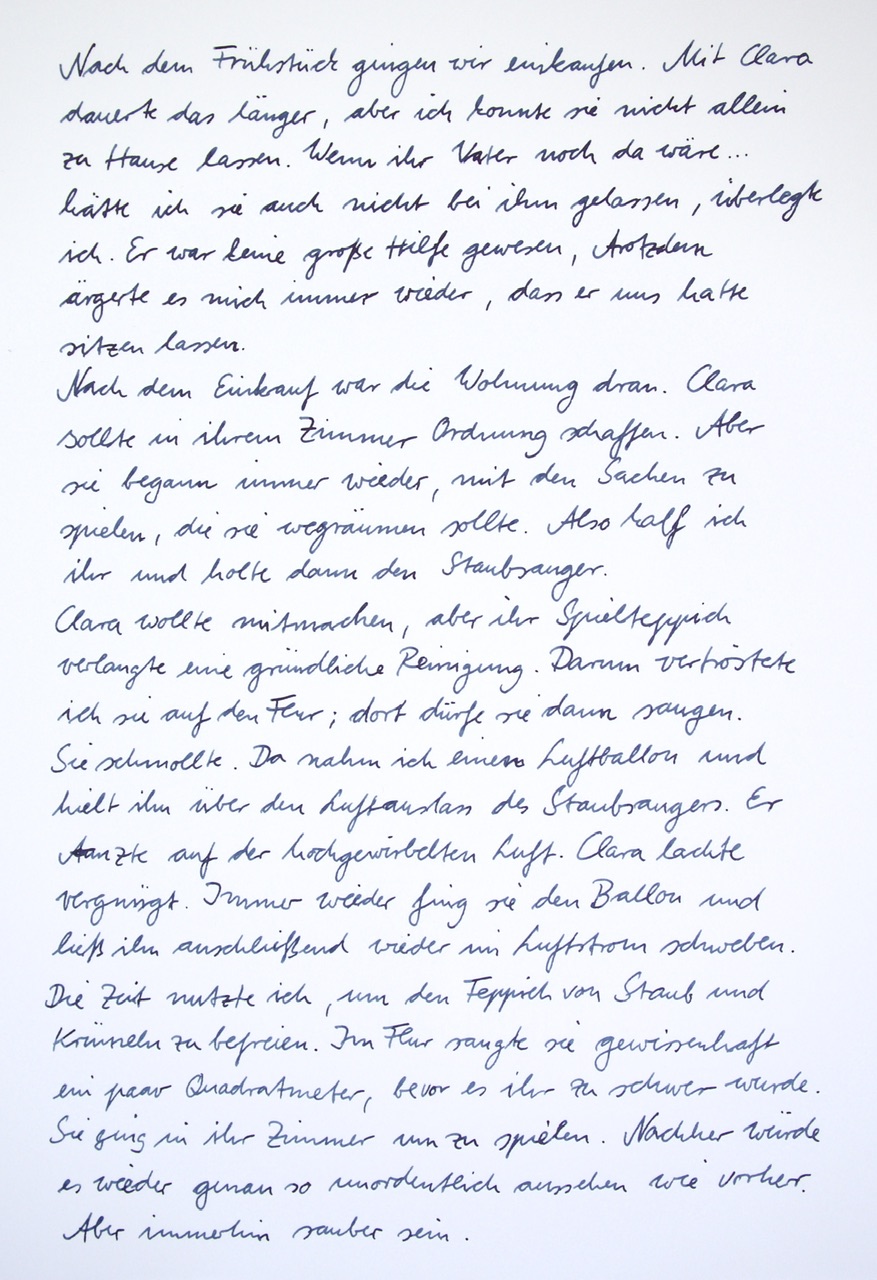 Nach dem Frühstück gingen wir einkaufen. Mit Clara
dauerte das länger, aber ich konnte sie nicht allein
zu Hause lassen. Wenn ihr Vater noch da wäre...
hätte ich sie auch nicht bei ihm gelassen, überlegte
ich. Er war keine große Hilfe gewesen, trotzdem
ärgerte es mich immer wieder, dass er uns hatte
sitzen lassen.
Nach dem Einkauf war die Wohnung dran. Clara
sollte in ihrem Zimmer Ordnung schaffen. Aber
sie begann immer wieder, mit den Sachen zu
spielen, die sie wegräumen sollte. Also half ich
ihr und holte dann den Staubsauger.
Clara wollte mitmachen, aber ihr Spielteppich
verlangte eine gründliche Reinigung. Darum vertröstete
ich sie auf den Flur; dort dürfe sie dann saugen.
Sie schmollte. Da nahm ich einen Luftballon und
hielt ihn über den Luftauslass des Staubsaugers. Er
tanzte auf der hochgewirbelten Luft. Clara lachte
vergnügt. Immer wieder fing sie den Ballon und
ließ ihn anschließend wieder im Luftstrom schweben.
Die Zeit nutzte ich, um den Teppich von Staub und
Krümeln zu befreien. Im Flur saugte sie gewissenhaft
ein paar Quadratmeter, bevor es ihr zu schwer wurde.
Sie ging in ihr Zimmer um zu spielen. Nachher würde
es wieder genau so unordentlich aussehen wie vorher.
Aber immerhin sauber sein.